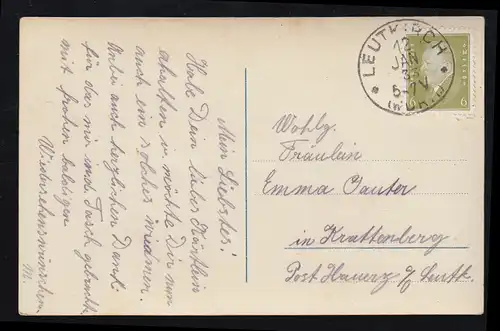 Mein Liebstes!
Habe Dein liebes Kärtlein
erhalten u. möchte Dir nun
auch ein solches widmen.
Anbei auch herzlichen Dank
für das mir ins Tasch gebrachte
mit frohen baldigen
Wiedersehenswünschen
M.
LEUTKIRCH
12
JAN
6-7V
(WÜRTT)
6
Wohlg.
Fräulein
Emma Sauter
in Krattenberg
Post Hauerz o/ Leutk.